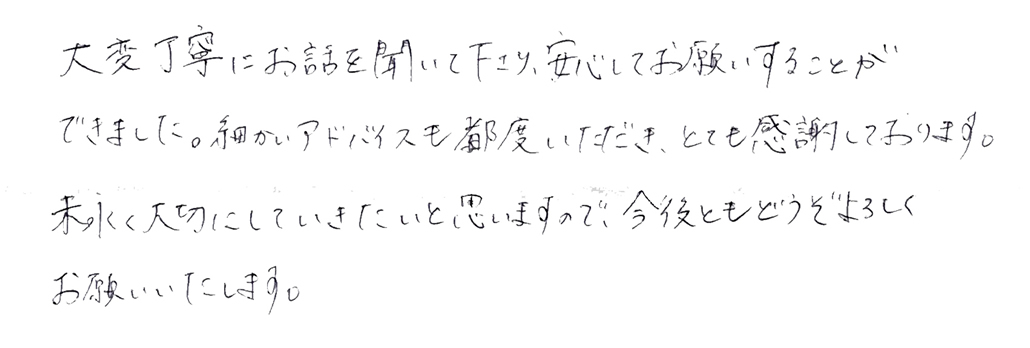 大変丁寧にお話を聞いて下さり、安心してお願いすることが
できました。細かいアドバイスも都度いただき、とても感謝しております。
末永く大切にしていきたいと思いますので、今後ともどうぞよろしく
お願いいたします。